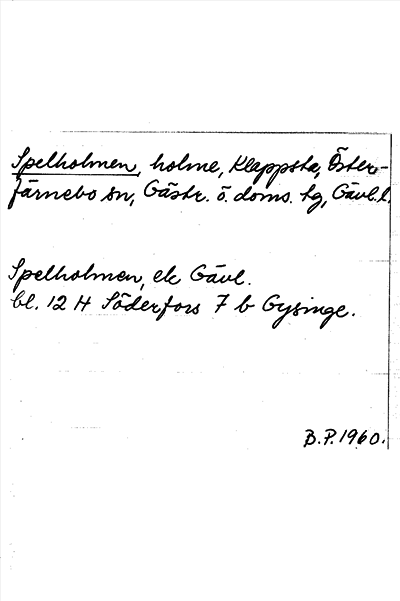 Spelholmen, holme, Klappsta, Öster-
färnebo sn, Gästr. ö. doms. tg, Gävl. l.
Spelholmen, ek Gävl.
bl. 12 H Söderfors 7 b Gysinge.
B.P. 1960.